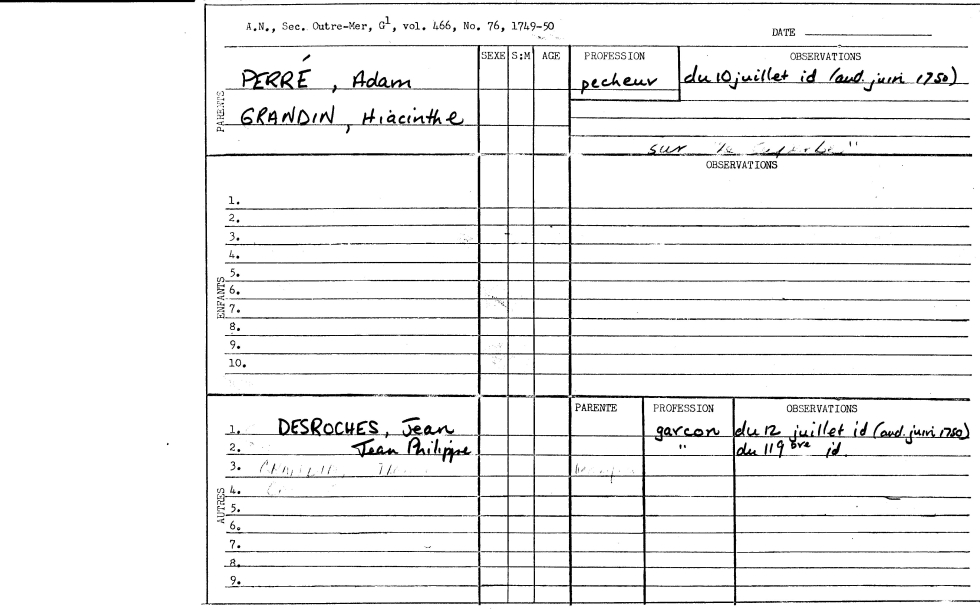 A.N., Sec. Outre-Mer, G1, vol. 466, No. 76, 1749-50
DATE
SEXE S:M AGE PROFESSION OBSERVATIONS
PARENTS
PERRÉ, Adam pecheur du 10 juillet id (aud. juin 1750)
GRANDIN, Hiacinthe
sur
OBSERVATIONS
ENFANTS
1.
2.
3.
4.
5.
6.
7.
8.
9.
10.
PARENTE PROFESSION OBSERVATIONS
AUTRES
1. DESROCHES, Jean garcon du 12 juillet id (aud. juin 1750)
2. Jean Philippe " du 11 9bre id.
3.
4.
5.
6.
7.
8.
9.